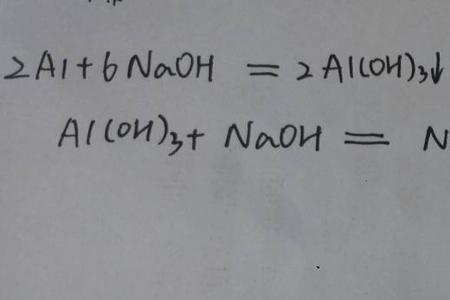 2Al+6NaOH = 2Al(OH)₃↓
Al(OH)₃+ NaOH = N